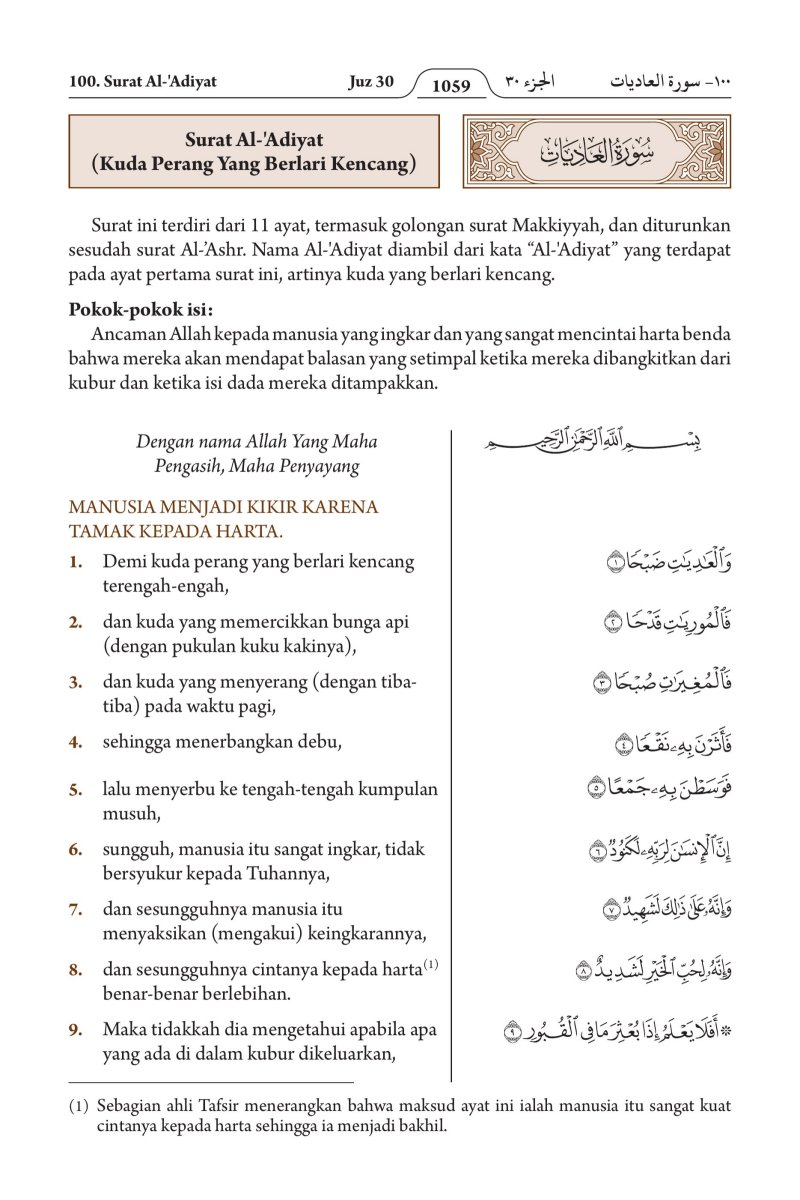 100. Surat Al-'Adiyat Juz 30 1059 الجزء ٣٠ ١٠٠- سورة العاديات
Surat Al-'Adiyat
(Kuda Perang Yang Berlari Kencang)
سُورَةُ الْعَادِيَاتِ
Surat ini terdiri dari 11 ayat, termasuk golongan surat Makkiyyah, dan diturunkan
sesudah surat Al-’Ashr. Nama Al-'Adiyat diambil dari kata “Al-'Adiyat” yang terdapat
pada ayat pertama surat ini, artinya kuda yang berlari kencang.
Pokok-pokok isi:
Ancaman Allah kepada manusia yang ingkar dan yang sangat mencintai harta benda
bahwa mereka akan mendapat balasan yang setimpal ketika mereka dibangkitkan dari
kubur dan ketika isi dada mereka ditampakkan.
Dengan nama Allah Yang Maha
Pengasih, Maha Penyayang
بِسْمِ ٱللَّهِ ٱلرَّحْمَٰنِ ٱلرَّحِيمِ
MANUSIA MENJADI KIKIR KARENA
TAMAK KEPADA HARTA.
1. Demi kuda perang yang berlari kencang
terengah-engah,
وَٱلْعَٰدِيَٰتِ ضَبْحًا ١
2. dan kuda yang memercikkan bunga api
(dengan pukulan kuku kakinya),
فَٱلْمُورِيَٰتِ قَدْحًا ٢
3. dan kuda yang menyerang (dengan tiba-
tiba) pada waktu pagi,
فَٱلْمُغِيرَٰتِ صُبْحًا ٣
4. sehingga menerbangkan debu,
فَأَثَرْنَ بِهِۦ نَقْعًا ٤
5. lalu menyerbu ke tengah-tengah kumpulan
musuh,
فَوَسَطْنَ بِهِۦ جَمْعًا ٥
6. sungguh, manusia itu sangat ingkar, tidak
bersyukur kepada Tuhannya,
إِنَّ ٱلْإِنسَٰنَ لِرَبِّهِۦ لَكَنُودٌ ٦
7. dan sesungguhnya manusia itu
menyaksikan (mengakui) keingkarannya,
وَإِنَّهُۥ عَلَىٰ ذَٰلِكَ لَشَهِيدٌ ٧
8. dan sesungguhnya cintanya kepada harta(1)
benar-benar berlebihan.
وَإِنَّهُۥ لِحُبِّ ٱلْخَيْرِ لَشَدِيدٌ ٨
9. Maka tidakkah dia mengetahui apabila apa
yang ada di dalam kubur dikeluarkan,
۞ أَفَلَا يَعْلَمُ إِذَا بُعْثِرَ مَا فِى ٱلْقُبُورِ ٩
(1) Sebagian ahli Tafsir menerangkan bahwa maksud ayat ini ialah manusia itu sangat kuat
cintanya kepada harta sehingga ia menjadi bakhil.